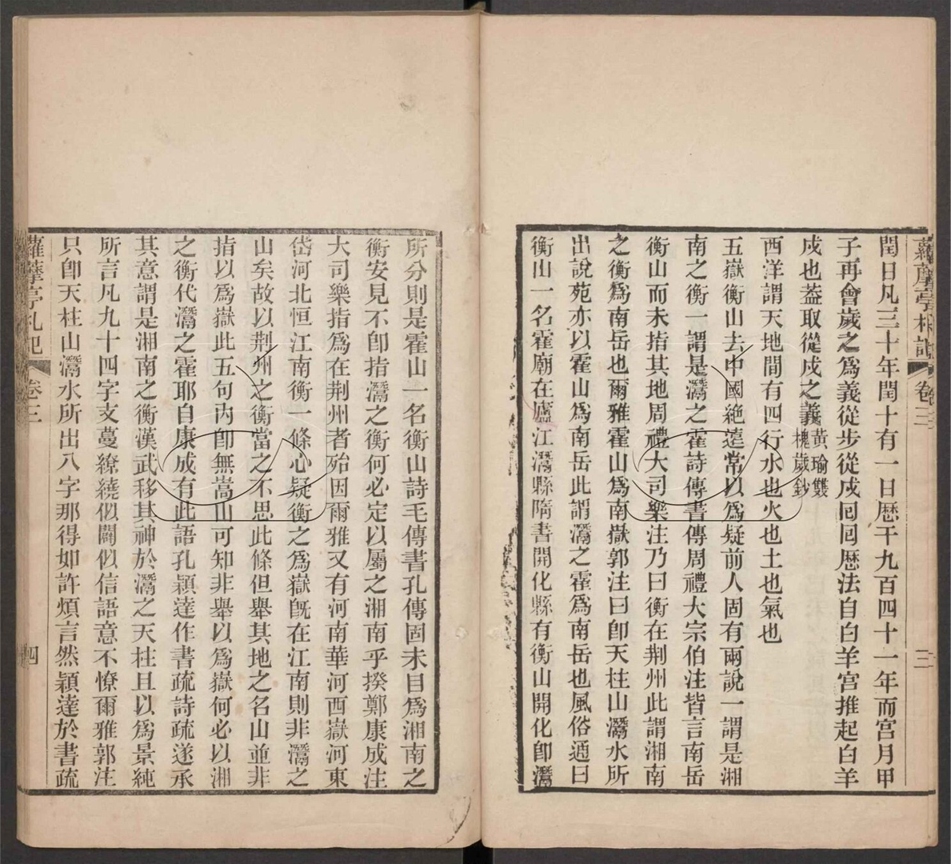 蘿藦亭札記 卷三 三
閏日凡三十年閏十有一日歷干九百四十一年而宮月甲
子再會歲之爲義從步從戌囘囘歷法自白羊宮推起白羊
戌也葢取從戌之義黃瑜雙槐歲鈔
西洋謂天地間有四行水也火也土也氣也
五嶽衡山去中國絶遠常以爲疑前人固有兩說一謂是湘
南之衡一謂是灊之霍詩傳書傳周禮大宗伯注皆言南岳
衡山而未指其地周禮大司樂注乃曰衡在荆州此謂湘南
之衡爲南岳也爾雅霍山爲南嶽郭注曰卽天柱山灊水所
出說苑亦以霍山爲南岳此謂灊之霍爲南岳也風俗通曰
衡山一名霍廟在廬江灊縣隋書開化縣有衡山開化卽灊
所分則是霍山一名衡山詩毛傳書孔傳固未目爲湘南之
衡安見不卽指灊之衡何必定以屬之湘南乎揆鄭康成注
大司樂指爲在荆州者殆因爾雅又有河南華河西嶽河東
岱河北恒江南衡一條心疑衡之爲嶽旣在江南則非灊之
山矣故以荆州之衡當之不思此條但舉其地之名山並非
指以爲嶽此五句內卽無嵩山可知非舉以爲嶽何必以湘
之衡代灊之霍耶自康成有此語孔穎達作書疏詩疏遂承
其意謂是湘南之衡漢武移其神於灊之天柱且以爲景純
所言凡九十四字支蔓繚繞似闢似信語意不憭爾雅郭注
只卽天柱山灊水所出八字那得如許煩言然穎達於書疏
蘿藦亭札記 卷三 四